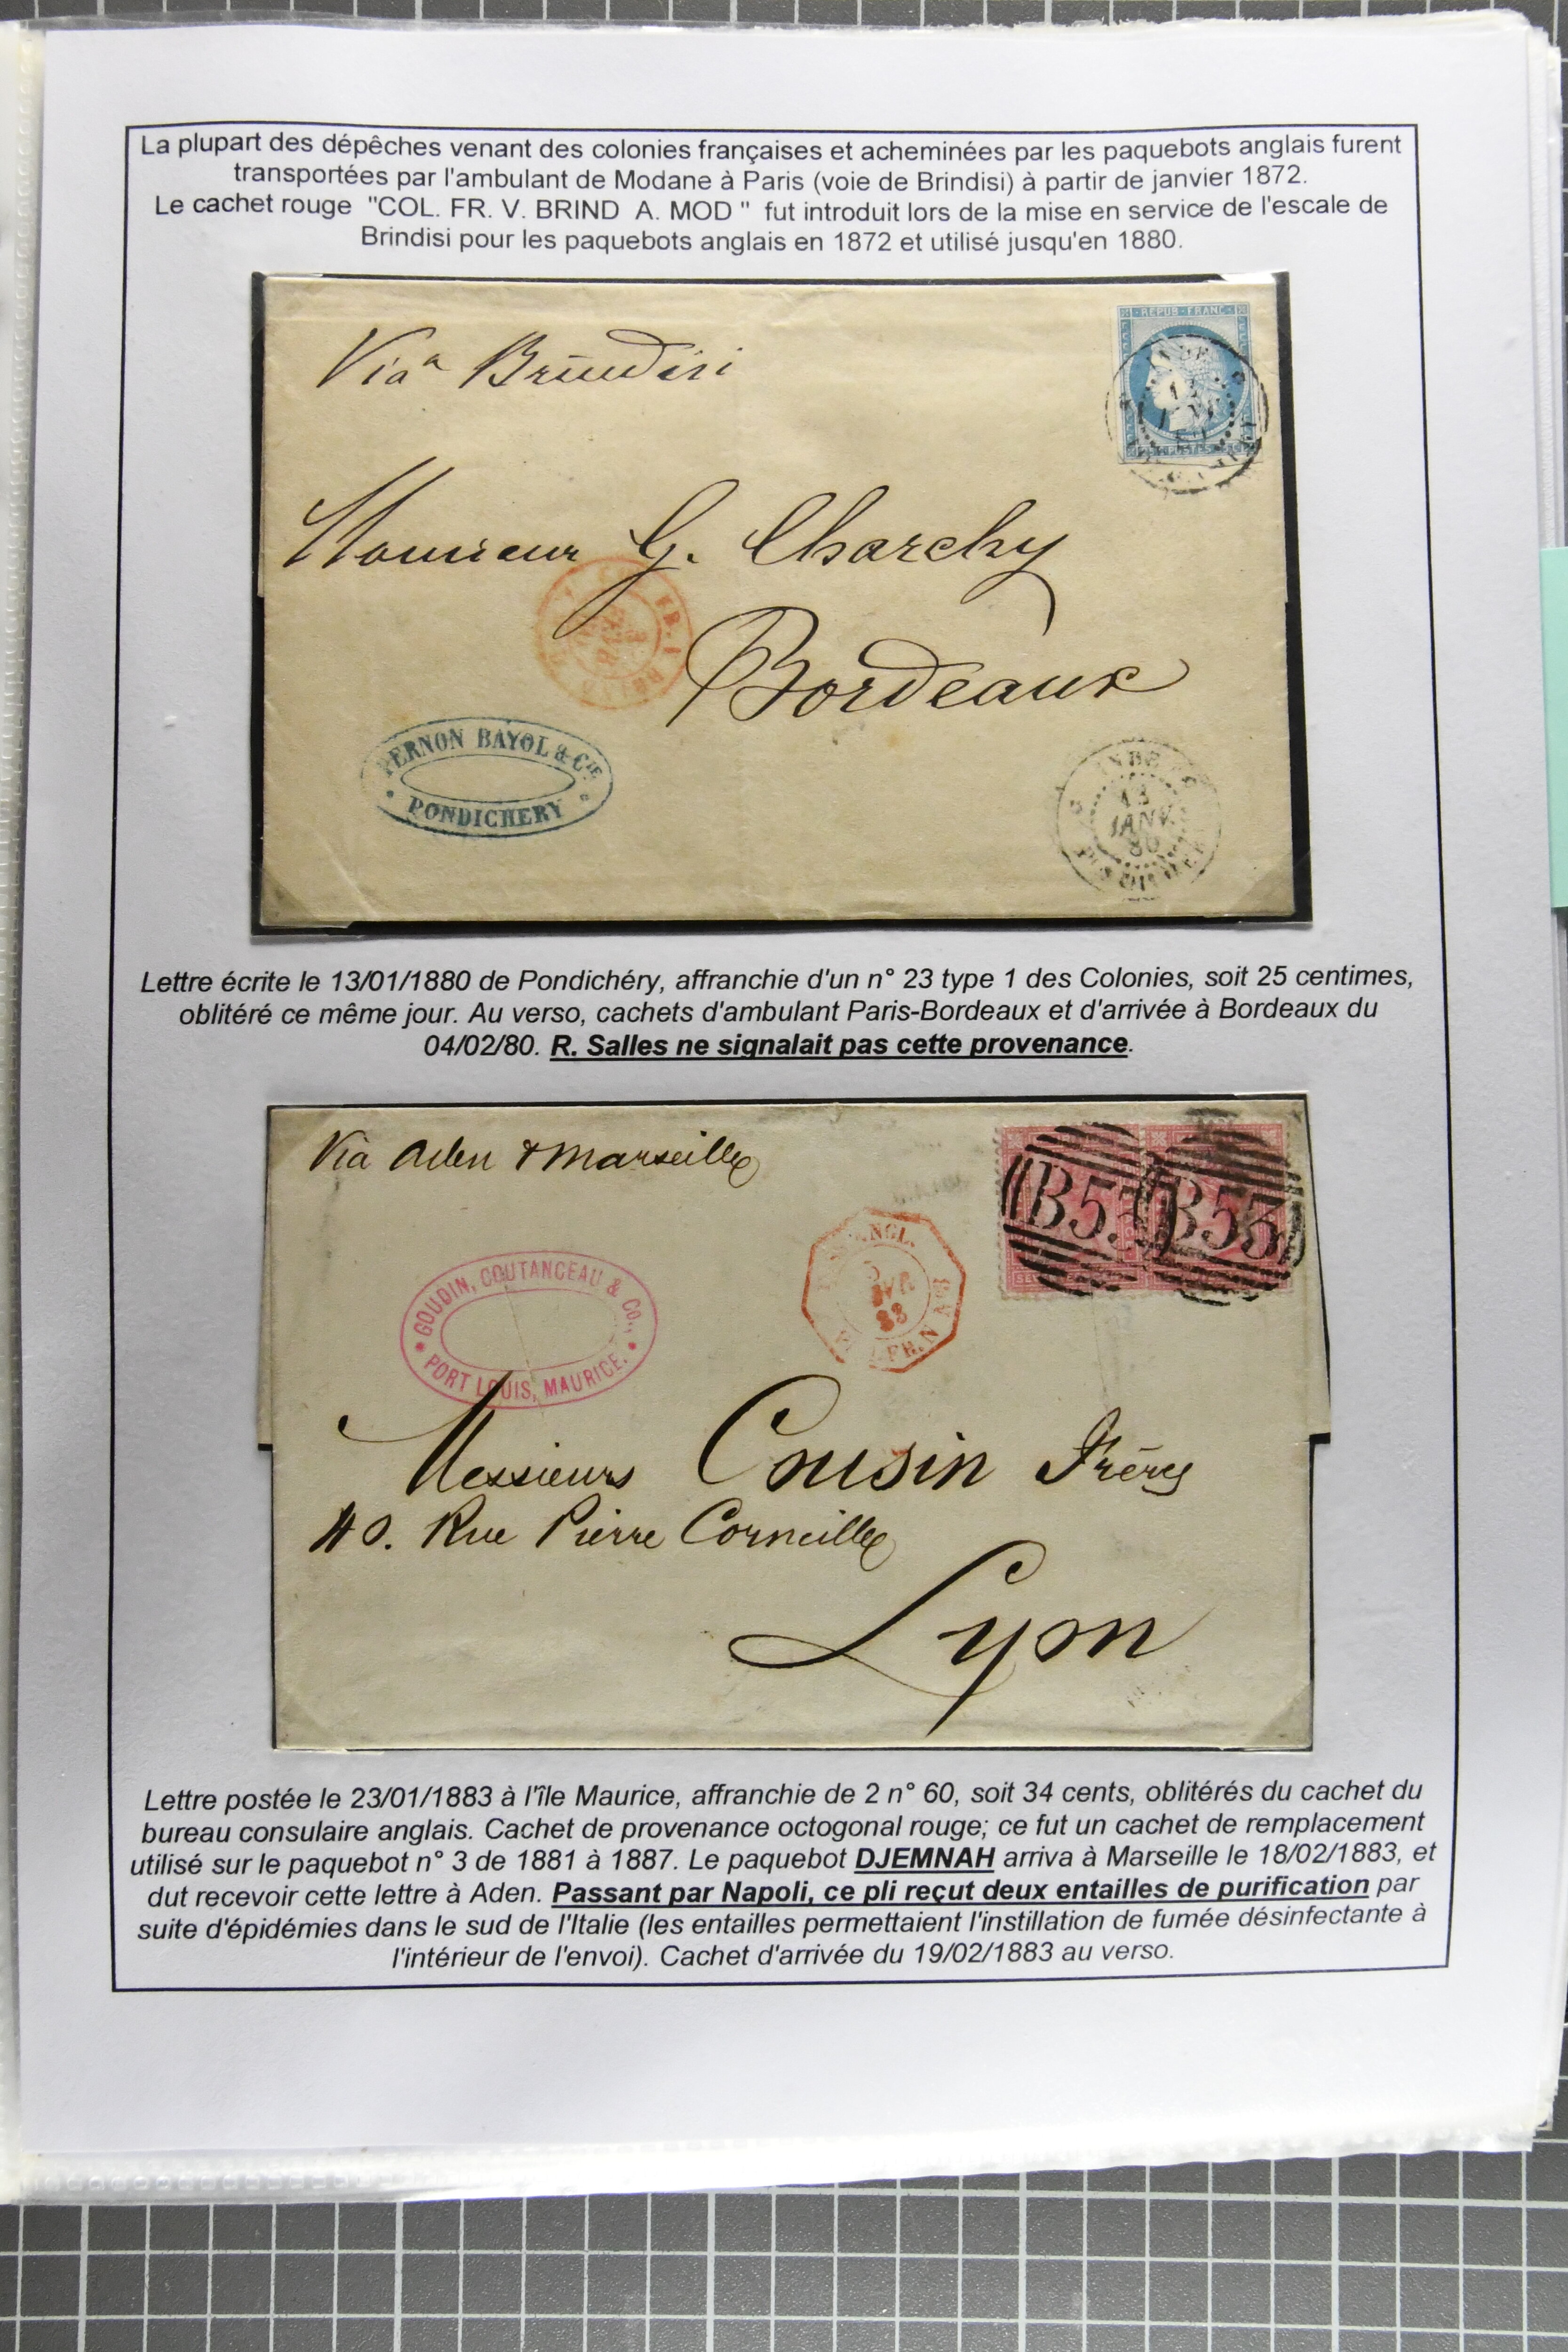 La plupart des dépêches venant des colonies françaises et acheminées par les paquebots anglais furent
transportées par l'ambulant de Modane à Paris (voie de Brindisi) à partir de janvier 1872.
Le cachet rouge "COL. FR. V. BRIND A. MOD " fut introduit lors de la mise en service de l'escale de
Brindisi pour les paquebots anglais en 1872 et utilisé jusqu'en 1880.
REPUB FRANC
POSTES
Via Brindisi
Monsieur G. Charchy
Bordeaux
PERNON BAYOL & CIE
PONDICHERY
INDE
13
JANV
80
Lettre écrite le 13/01/1880 de Pondichéry, affranchie d'un n° 23 type 1 des Colonies, soit 25 centimes,
oblitéré ce même jour. Au verso, cachets d'ambulant Paris-Bordeaux et d'arrivée à Bordeaux du
04/02/80. R. Salles ne signalait pas cette provenance.
Via Aden & Marseille
B53 B53
GOUDIN, COUTANCEAU & Co.,
PORT LOUIS, MAURICE.
ANGL.
83
FR. N N°3
Messieurs Cousin Frères
40. Rue Pierre Corneille
Lyon
Lettre postée le 23/01/1883 à l'île Maurice, affranchie de 2 n° 60, soit 34 cents, oblitérés du cachet du
bureau consulaire anglais. Cachet de provenance octogonal rouge; ce fut un cachet de remplacement
utilisé sur le paquebot n° 3 de 1881 à 1887. Le paquebot DJEMNAH arriva à Marseille le 18/02/1883, et
dut recevoir cette lettre à Aden. Passant par Napoli, ce pli reçut deux entailles de purification par
suite d'épidémies dans le sud de l'Italie (les entailles permettaient l'instillation de fumée désinfectante à
l'intérieur de l'envoi). Cachet d'arrivée du 19/02/1883 au verso.